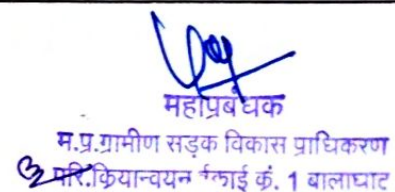 महाप्रबंधक
म.प्र.ग्रामीण सड़क विकास प्राधिकरण
परि.क्रियान्वयन ईकाई कं. 1 बालाघाट